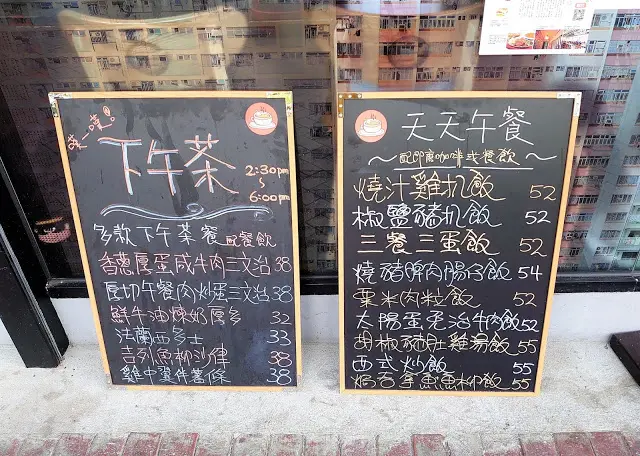 嘆一嘆!
下午茶
2:30pm
~
6:00pm
多款下午茶餐 配餐飲
香蔥厚蛋咸牛肉三文治 38
厚切午餐肉炒蛋三文治 38
鮮牛油煉奶厚多 32
法蘭西多士 33
吉列魚柳沙律 38
雞中翼伴薯條 38
天天午餐
~配即磨咖啡或餐飲~
燒汁雞扒飯 52
椒鹽豬扒飯 52
三餐三蛋飯 52
燒豬脾肉腸仔飯 54
粟米肉粒飯 52
太陽蛋免治牛肉飯 52
胡椒豬肚雞湯飯 55
西式炒飯 55
魚柳飯 55